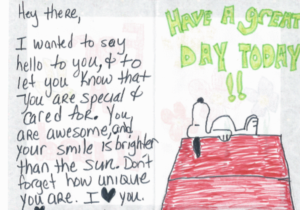 Hey there,
I wanted to say
hello to you, & to
let you know that
you are special &
cared for. You
are awesome, and
your smile is brighter
than the sun. Don't
forget how unique
you are. I ♥ you.
HAVE A great
DAY TODAY
!!